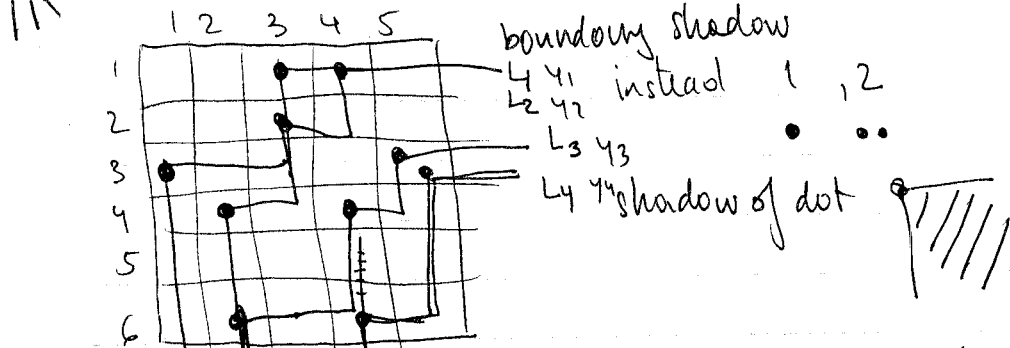 1 2 3 4 5
boundary shadow
1 L1 Y1 instead 1 , 2
L2 Y2
2
L3 Y3
3
L4 Y4 shadow of dot
4
5
6